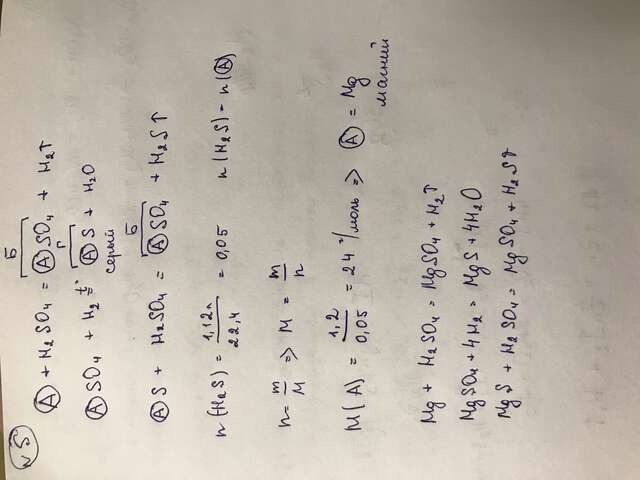 №5
Б
Ⓐ + H₂SO₄ = ⒶSO₄ + H₂↑
Г
ⒶSO₄ + H₂ t°= ⒶS + H₂O
серый
Б
ⒶS + H₂SO₄ = ⒶSO₄ + H₂S↑
n(H₂S) = 1,12л / 22,4 = 0,05 n(H₂S) - n(Ⓐ)
n = m/M => M = m/n
M(A) = 1,2 / 0,05 = 24 г/моль => Ⓐ = Mg
магний
Mg + H₂SO₄ = MgSO₄ + H₂↑
MgSO₄ + 4H₂ = MgS + 4H₂O
MgS + H₂SO₄ = MgSO₄ + H₂S↑